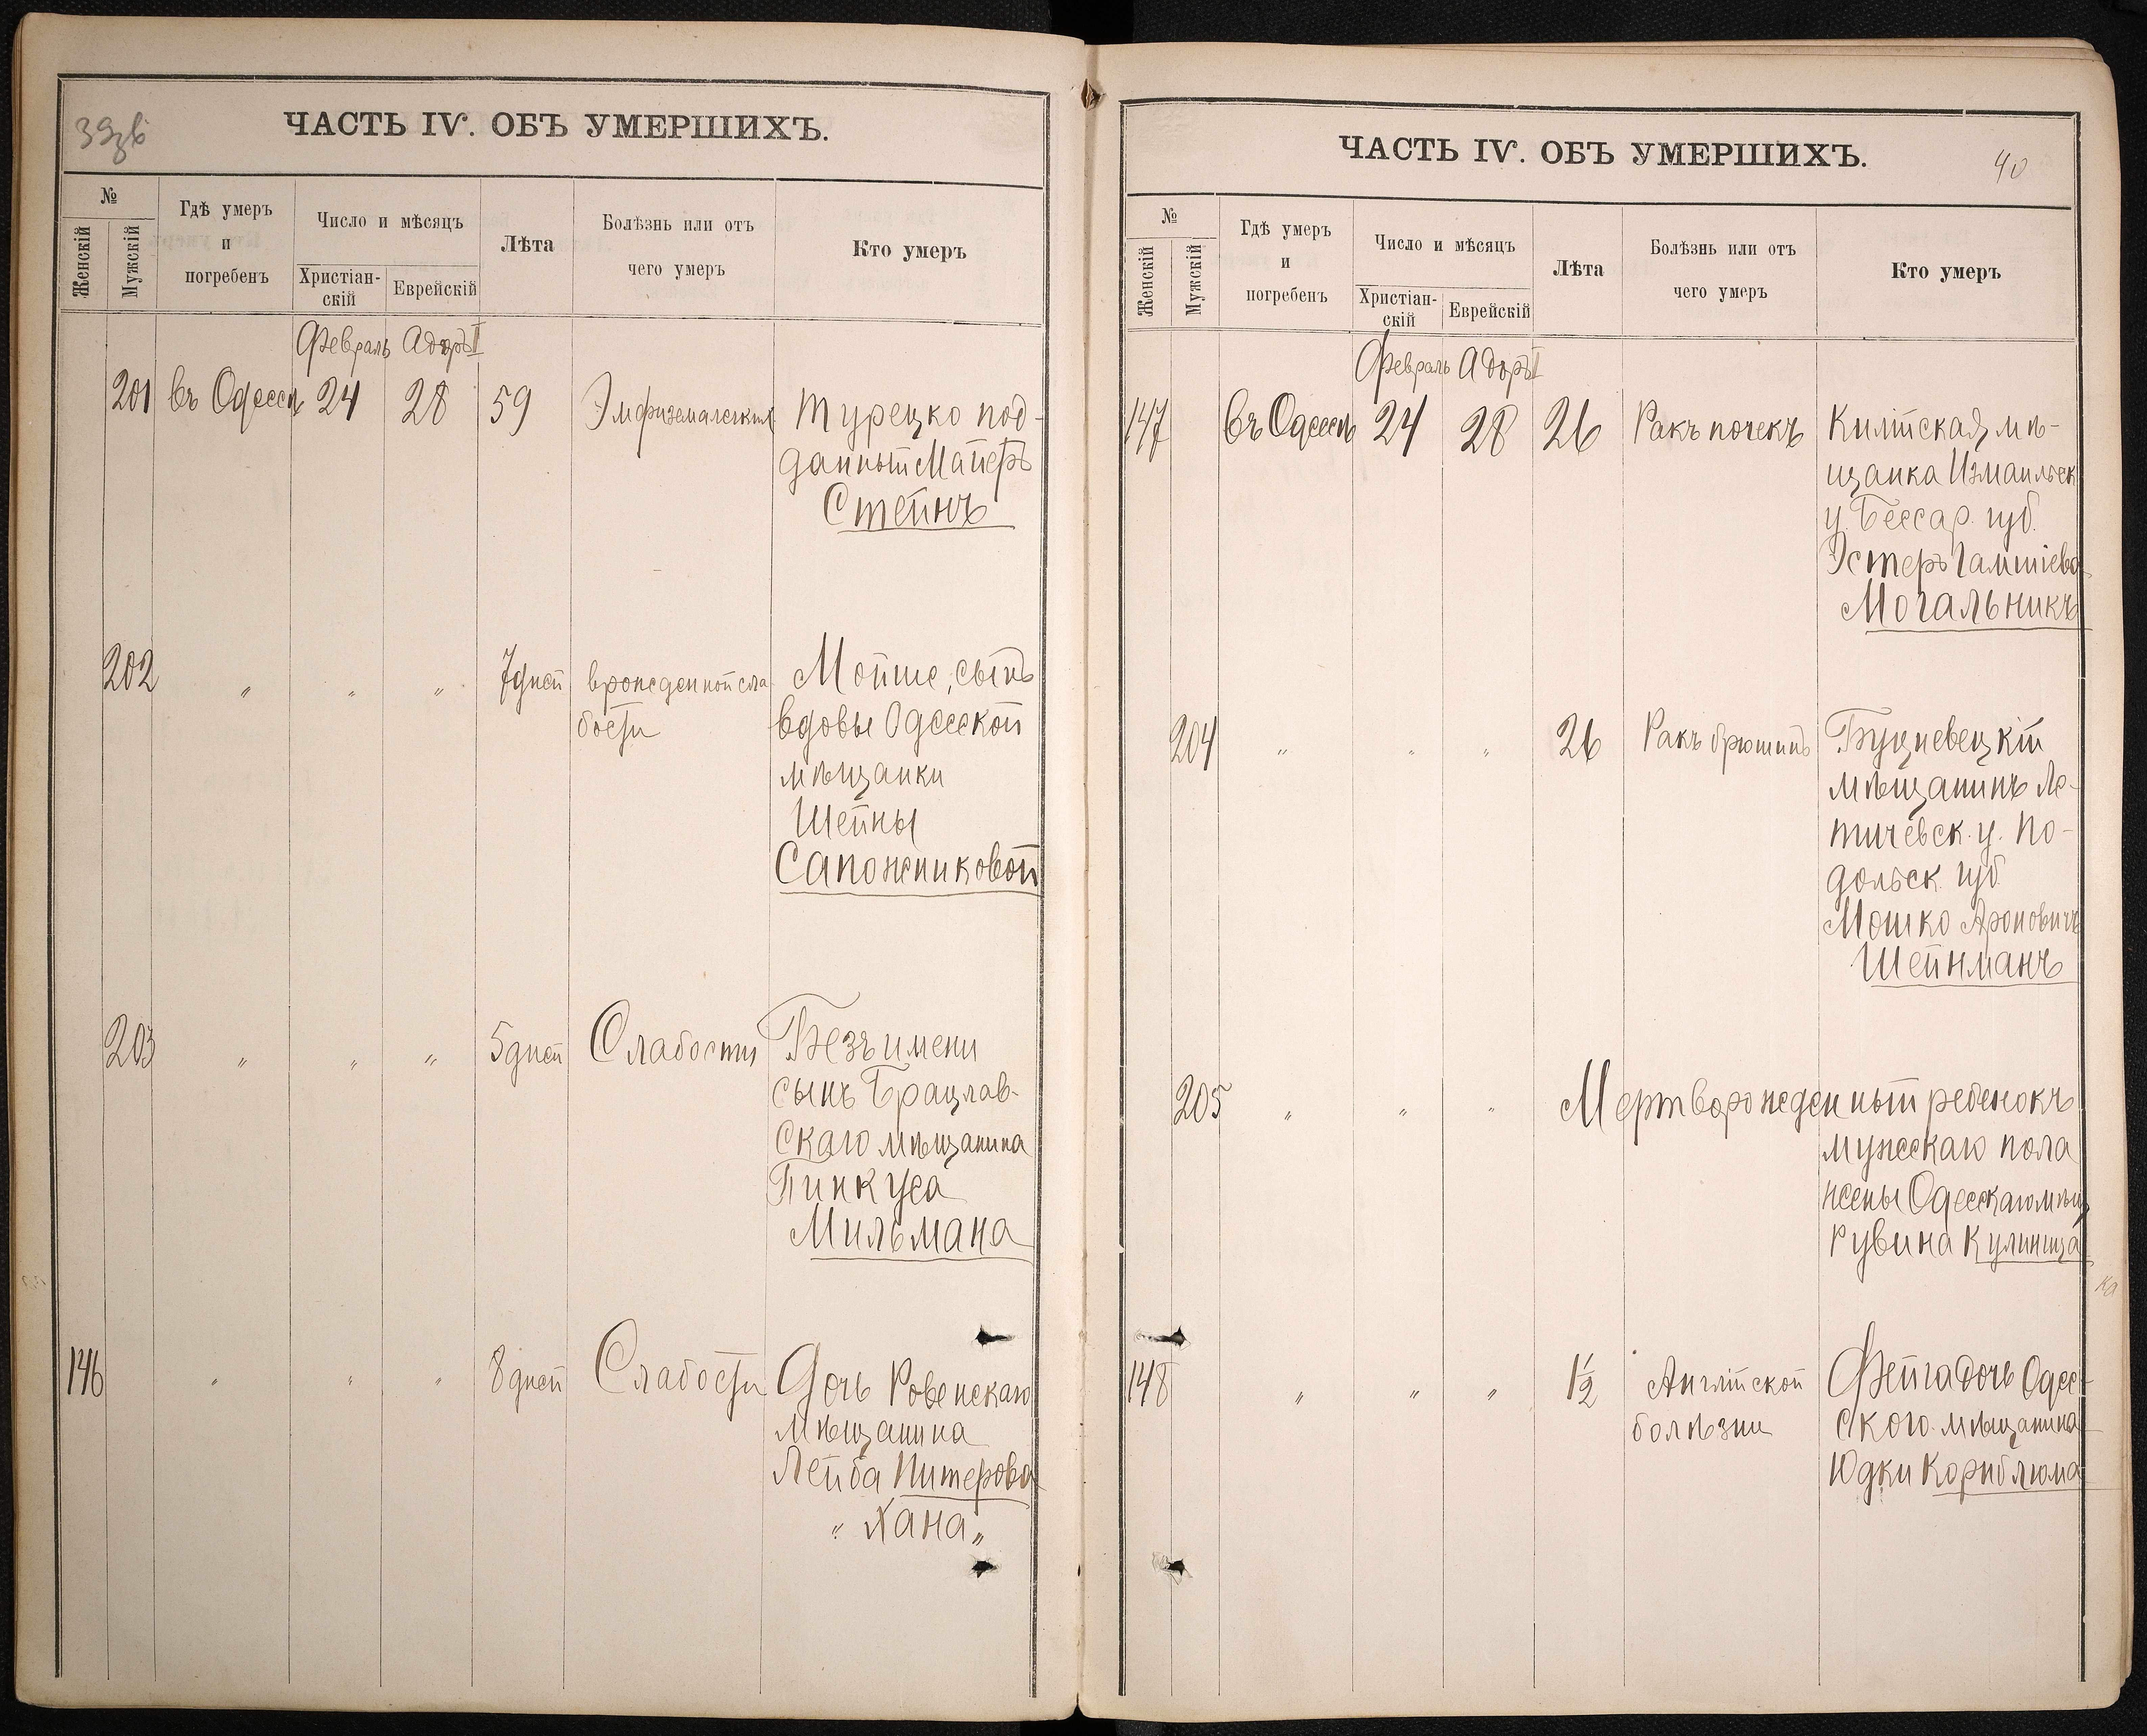 39об
ЧАСТЬ IV. ОБЪ УМЕРШИХЪ.
№
Женскій
Мужскій
Гдѣ умеръ
и
погребенъ
Число и мѣсяцъ
Христіан-
скій
Еврейскій
Лѣта
Болѣзнь или отъ
чего умеръ
Кто умеръ
Февраль Адоръ II
201 въ Одессѣ 24 28 59 Турецко под-
данный Маеръ
Стейнъ
202 " " " 7 дней врожденной сла Мойше, сынъ
бости вдовы Одесской
мѣщанки
Шейны
Сапожниковой
203 " " " 5 дней Слабости Безъ имени
сынъ Брацлав-
скаго мѣщанина
Пинкуса
Мильмана
146 " " " 8 дней Слабости Дочь Ровенскаго
мѣщанина
Лейба Питерова
"Хана"
ЧАСТЬ IV. ОБЪ УМЕРШИХЪ.
40
№
Женскій
Мужскій
Гдѣ умеръ
и
погребенъ
Число и мѣсяцъ
Христіан-
скій
Еврейскій
Лѣта
Болѣзнь или отъ
чего умеръ
Кто умеръ
Февраль Адоръ II
147 въ Одессѣ 24 28 26 Ракъ почекъ Килійская мѣ-
щанка Измаильск
у. Бессар. губ.
Эстеръ
Могальникъ
204 " " " 26 Ракъ брюшины Буцневецкій
мѣщанинъ Ле-
тичевск. у. По-
дольск. губ.
Мошко Ароновичъ
Шейнманъ
205 " " " Мертворожденный ребенокъ
мужскаго пола
жены Одесскаго мѣщ
Рувина
ка
148 " " " 1 1/2 Англійской Фейга дочь Одес-
болѣзни скаго мѣщанина
Юдки Корнблюма